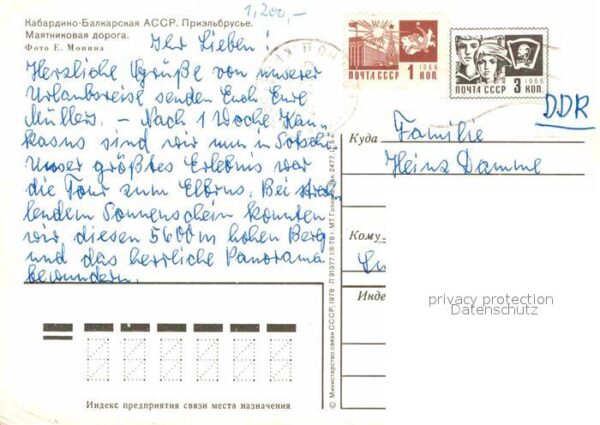 1,200,-
Кабардино-Балкарская АССР. Приэльбрусье.
Маятниковая дорога.
Фото Е. Монина
Ihr Lieben!
Herzliche Grüße von unserer
Urlaubsreise senden Euch Eure
Müllers. – Nach 1 Woche Kau-
kasus sind wir nun in Sotschi.
Unser größtes Erlebnis war
die Tour zum Elbrus. Bei strah-
lendem Sonnenschein konnten
wir diesen 5600m hohen Berg
und das herrliche Panorama
bewundern.
Индекс предприятия связи места назначения
© Министерство связи СССР, 1976
ПОЧТА СССР 1 КОП. 1966
ПОЧТА СССР 3 КОП. 1966
DDR
Куда Familie
Heinz Damme
Кому
Инде
privacy protection
Datenschutz